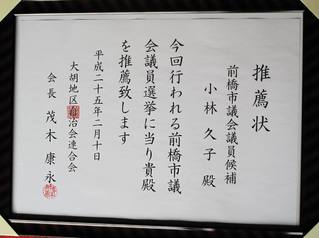 推薦状
前橋市議会議員候補
小林 久子 殿
今回行われる前橋市議
会議員選挙に当り貴殿
を推薦致します
平成二十五年二月十日
大胡地区自治会連合会
会長 茂木 康永